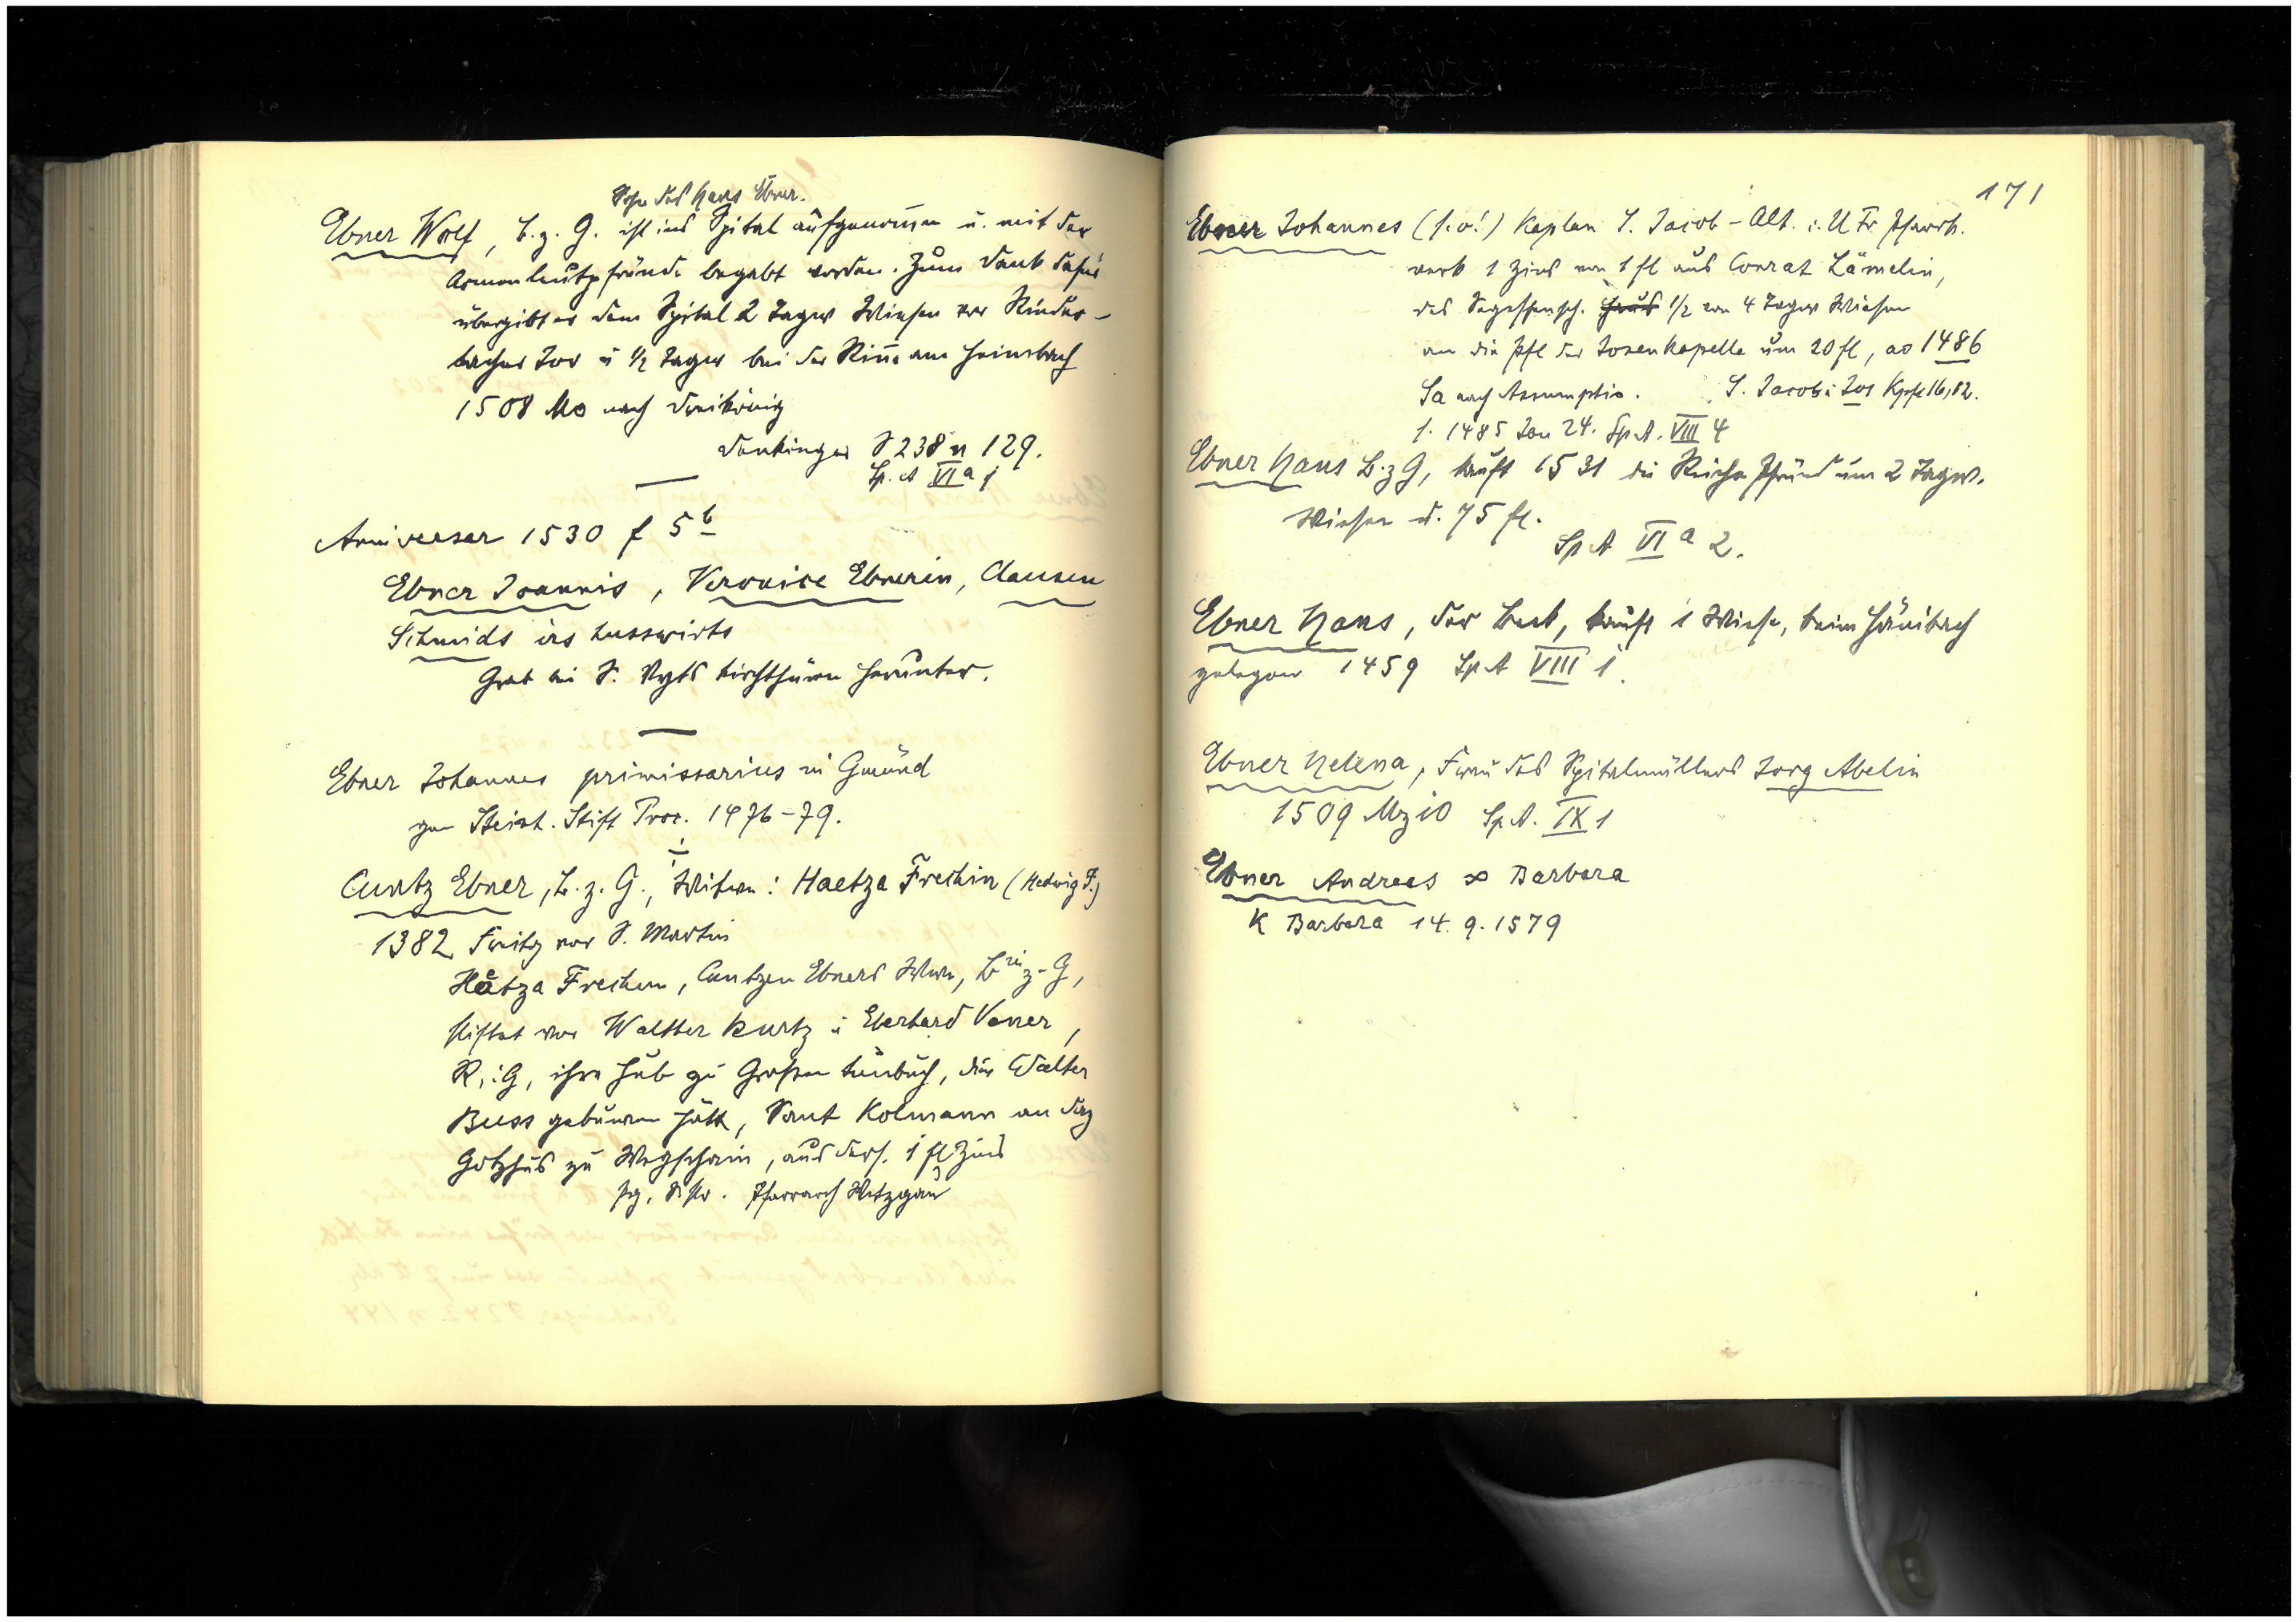 Sohn des Hans Ebner.
Ebner Wolf, B. z. G. ist ins Spital aufgenom̅en u. mit der
Armenleutpfründe begabt worden. Zum Dank dafür
übergibt er dem Spital 2 Tagw Wiesen vor Rinder-
bacher Tor u ½ Tagw bei der Rin̅e am
1508 Mo nach Dreikönig
Denkinger S 238 n 129.
Sp. A VI a 1
Aniversar 1530 f 5 b
Ebner Joannis, Veronice Ebnerin, Clausen
Schmids irs husswirts
Grab bei S. Vyts kirchthürn herunter.
Ebner Johannes primissarius in Gmünd
Stift Proc. 1476-79.
Cuntz Ebner, B. z. G., Witwe: Haetza Frechin (Hedwig F.)
1382 Freitg vor S. Martin
Håtza Frechen, Cuntzen Ebners Wwe, B rin z. G,
stiftet vor Walther Kurtz u Eberhard Vener,
R. i. G, ihre Hub zu Großen, die Walter
Buss gebuwen hått, Sant Kolmann an daz
Gotzhus zu Wegschain, aus ders. 1 fl Zins
Pfarrarch Wetzgau
171
Ebner Johannes (s. o!) Kaplan S. Jacob-Alt. i. U Fr Pfarrk.
verk 1 Zins von 1 fl aus Conrat Lämelin,
des Segessensch. ½ von 4 Tagw Wiesen
an die Pfl der Josenkapelle um 20 fl, ao 1486
Sa nach Assumptio. S. Jacob: Jos Kpfl 16,82.
1. 1485 Jan 24. Sp A. VIII 4
Ebner Hans B. z G, kauft 1531 die Reiche Pfründ um 2 Tagw.
Wiesen u. 75 fl.
Sp A VI a 2.
Ebner Hans, der Beck, kauft 1 Wiese, beim
gelegen 1459 Sp A VIII 1.
Ebner Helena, Frau des Spitalmüllers Jorg Abelin
1509 Mz 10 Sp A. IX 1
Ebner Andreas ∞ Barbara
K Barbara 14. 9. 1579